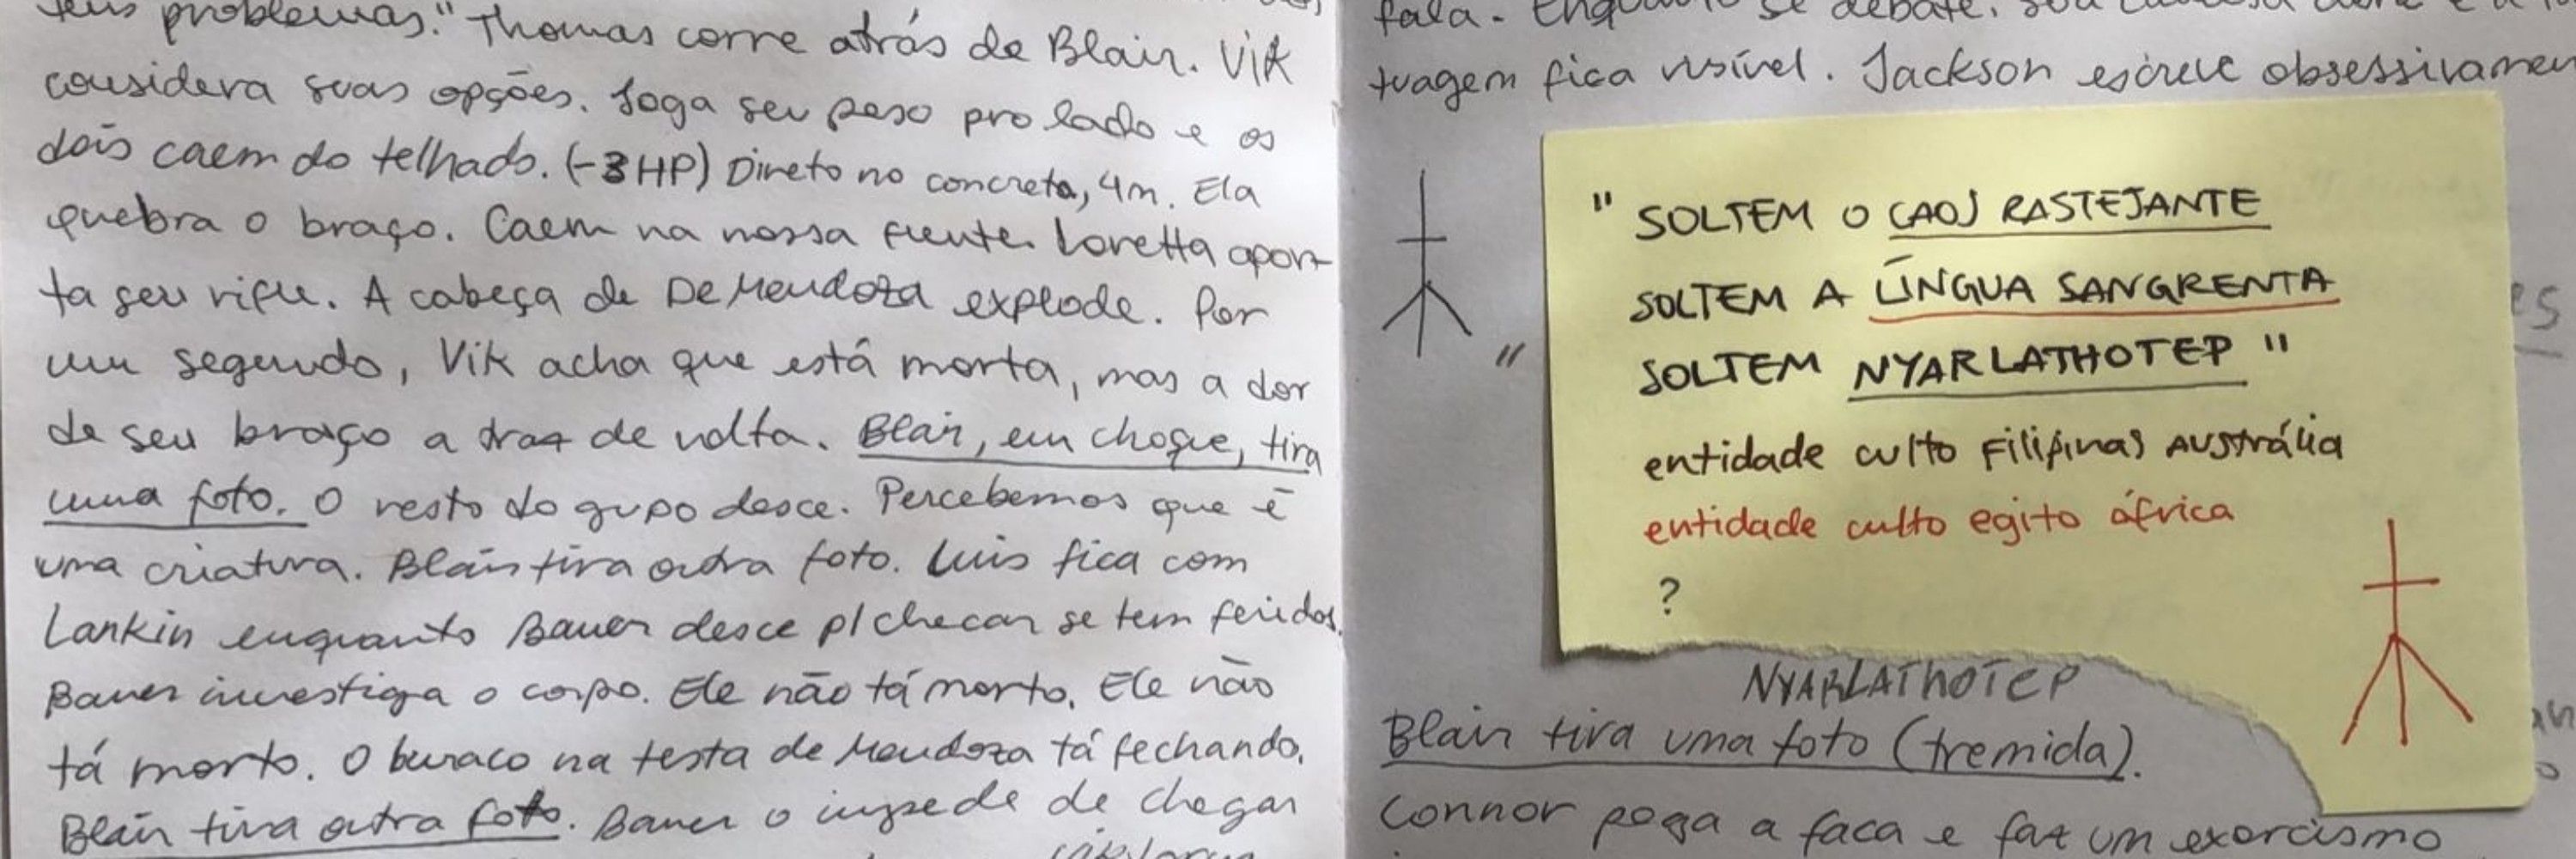 teus problemas." Thomas corre atrás de Blair. Vik
considera suas opções. Joga seu peso pro lado e os
dois caem do telhado. (-3HP) Direto no concreto, 4m. Ela
quebra o braço. Caem na nossa frente. Loretta apon-
ta seu rifle. A cabeça de De Mendoza explode. Por
um segundo, Vik acha que está morta, mas a dor
de seu braço a traz de volta. Blair, em choque, tira
uma foto. O resto do gupo desce. Percebemos que é
uma criatura. Blair tira outra foto. Luis fica com
Lankin enquanto Bauer desce p/ checar se tem feridos.
Bauer investiga o corpo. Ele não tá morto. Ele não
tá morto. O buraco na testa de Mendoza tá fechando.
Blair tira outra foto. Bauer o impede de chegar
fala. Enquanto se debate, sua
tuagem fica visível. Jackson escreve obsessivamen
"
" SOLTEM O CAOS RASTEJANTE
SOLTEM A LÍNGUA SANGRENTA
SOLTEM NYARLATHOTEP "
entidade culto Filipinas Austrália
entidade culto egito áfrica
?
NYARLATHOTEP
Blair tira uma foto (tremida).
Connor pega a faca e faz um exorcismo